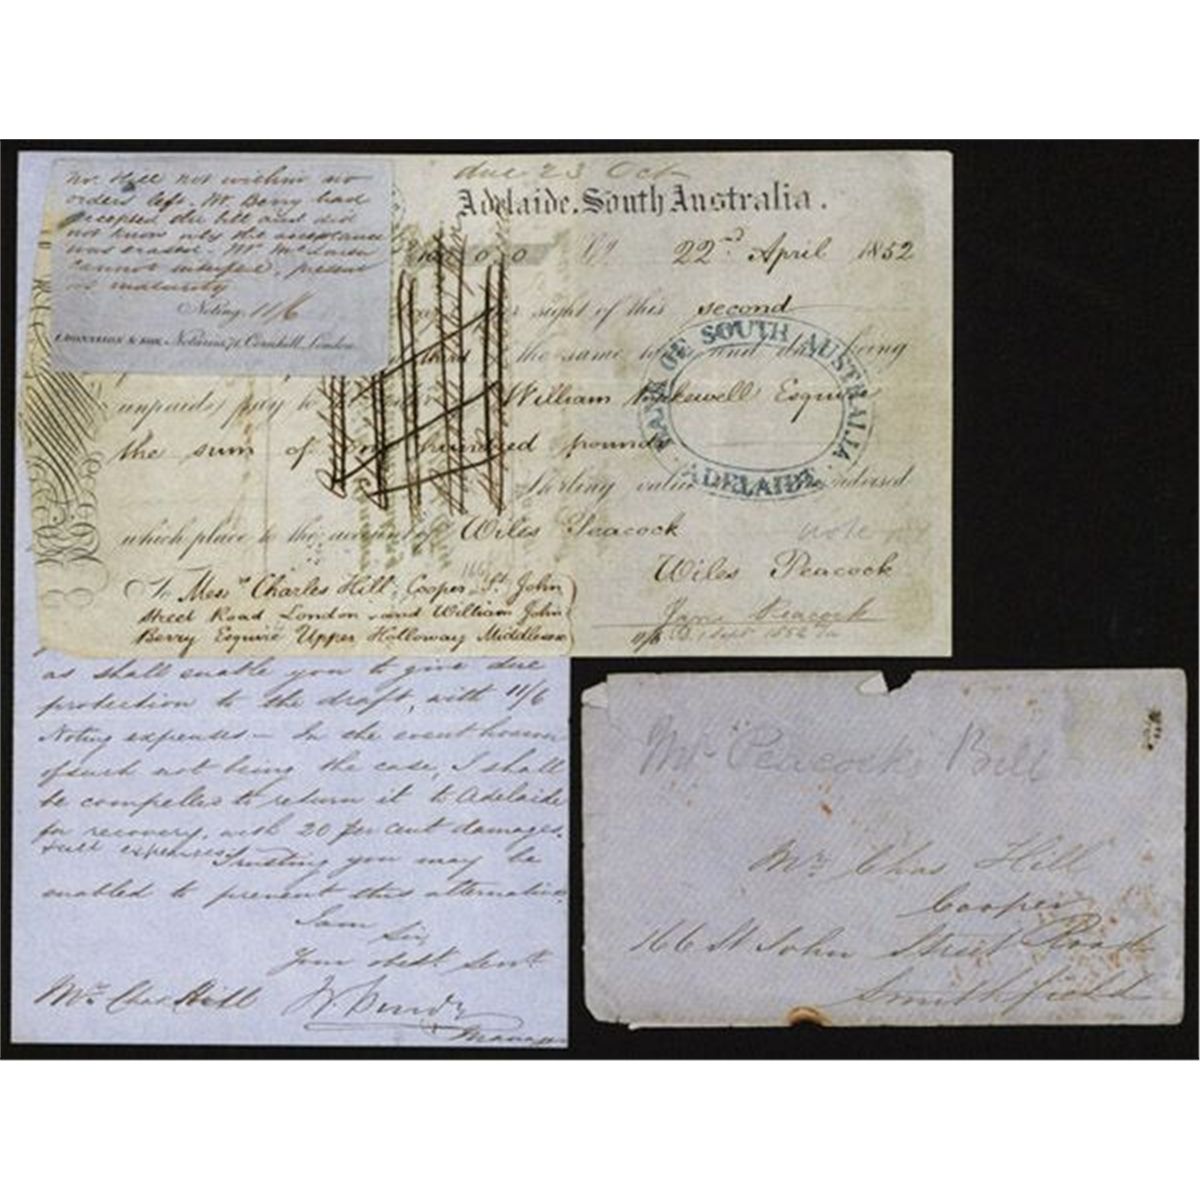 Mr. Hill not within no
orders left. Mr Berry had
accepted the bill and did
not know why the acceptance
was erased. Mr
cannot interfere, present
at maturity
Noting 11/6
& SON Notaries, Cornhill, London
due 23 Oct
Adelaide. South Australia.
22nd April 1852
sight of this second
the same being
unpaid) pay to William Bakewell Esquire
the sum of one hundred pounds
Sterling value advised
which place to the account of Wiles Peacock
note
Wiles Peacock
Jane Peacock
11/6
BANK OF SOUTH AUSTRALIA
ADELAIDE
166
To Messrs Charles Hill, Cooper, St. John
Street Road London and William John
Berry Esquire Upper Holloway Middlesex
as shall enable you to give due
protection to the draft, with 11/6
Noting expenses — In the event however
of such not being the case, I shall
be compelled to return it to Adelaide
for recovery, with 20 per cent damages
& all expenses. Trusting you may be
enabled to prevent this alternative,
I am
Sir
Your obedt. Servt.
Mr. Chas Hill
Manager
Mr Peacock's Bill
Mr. Chas Hill
Cooper
166 St John Street Road
Smithfield